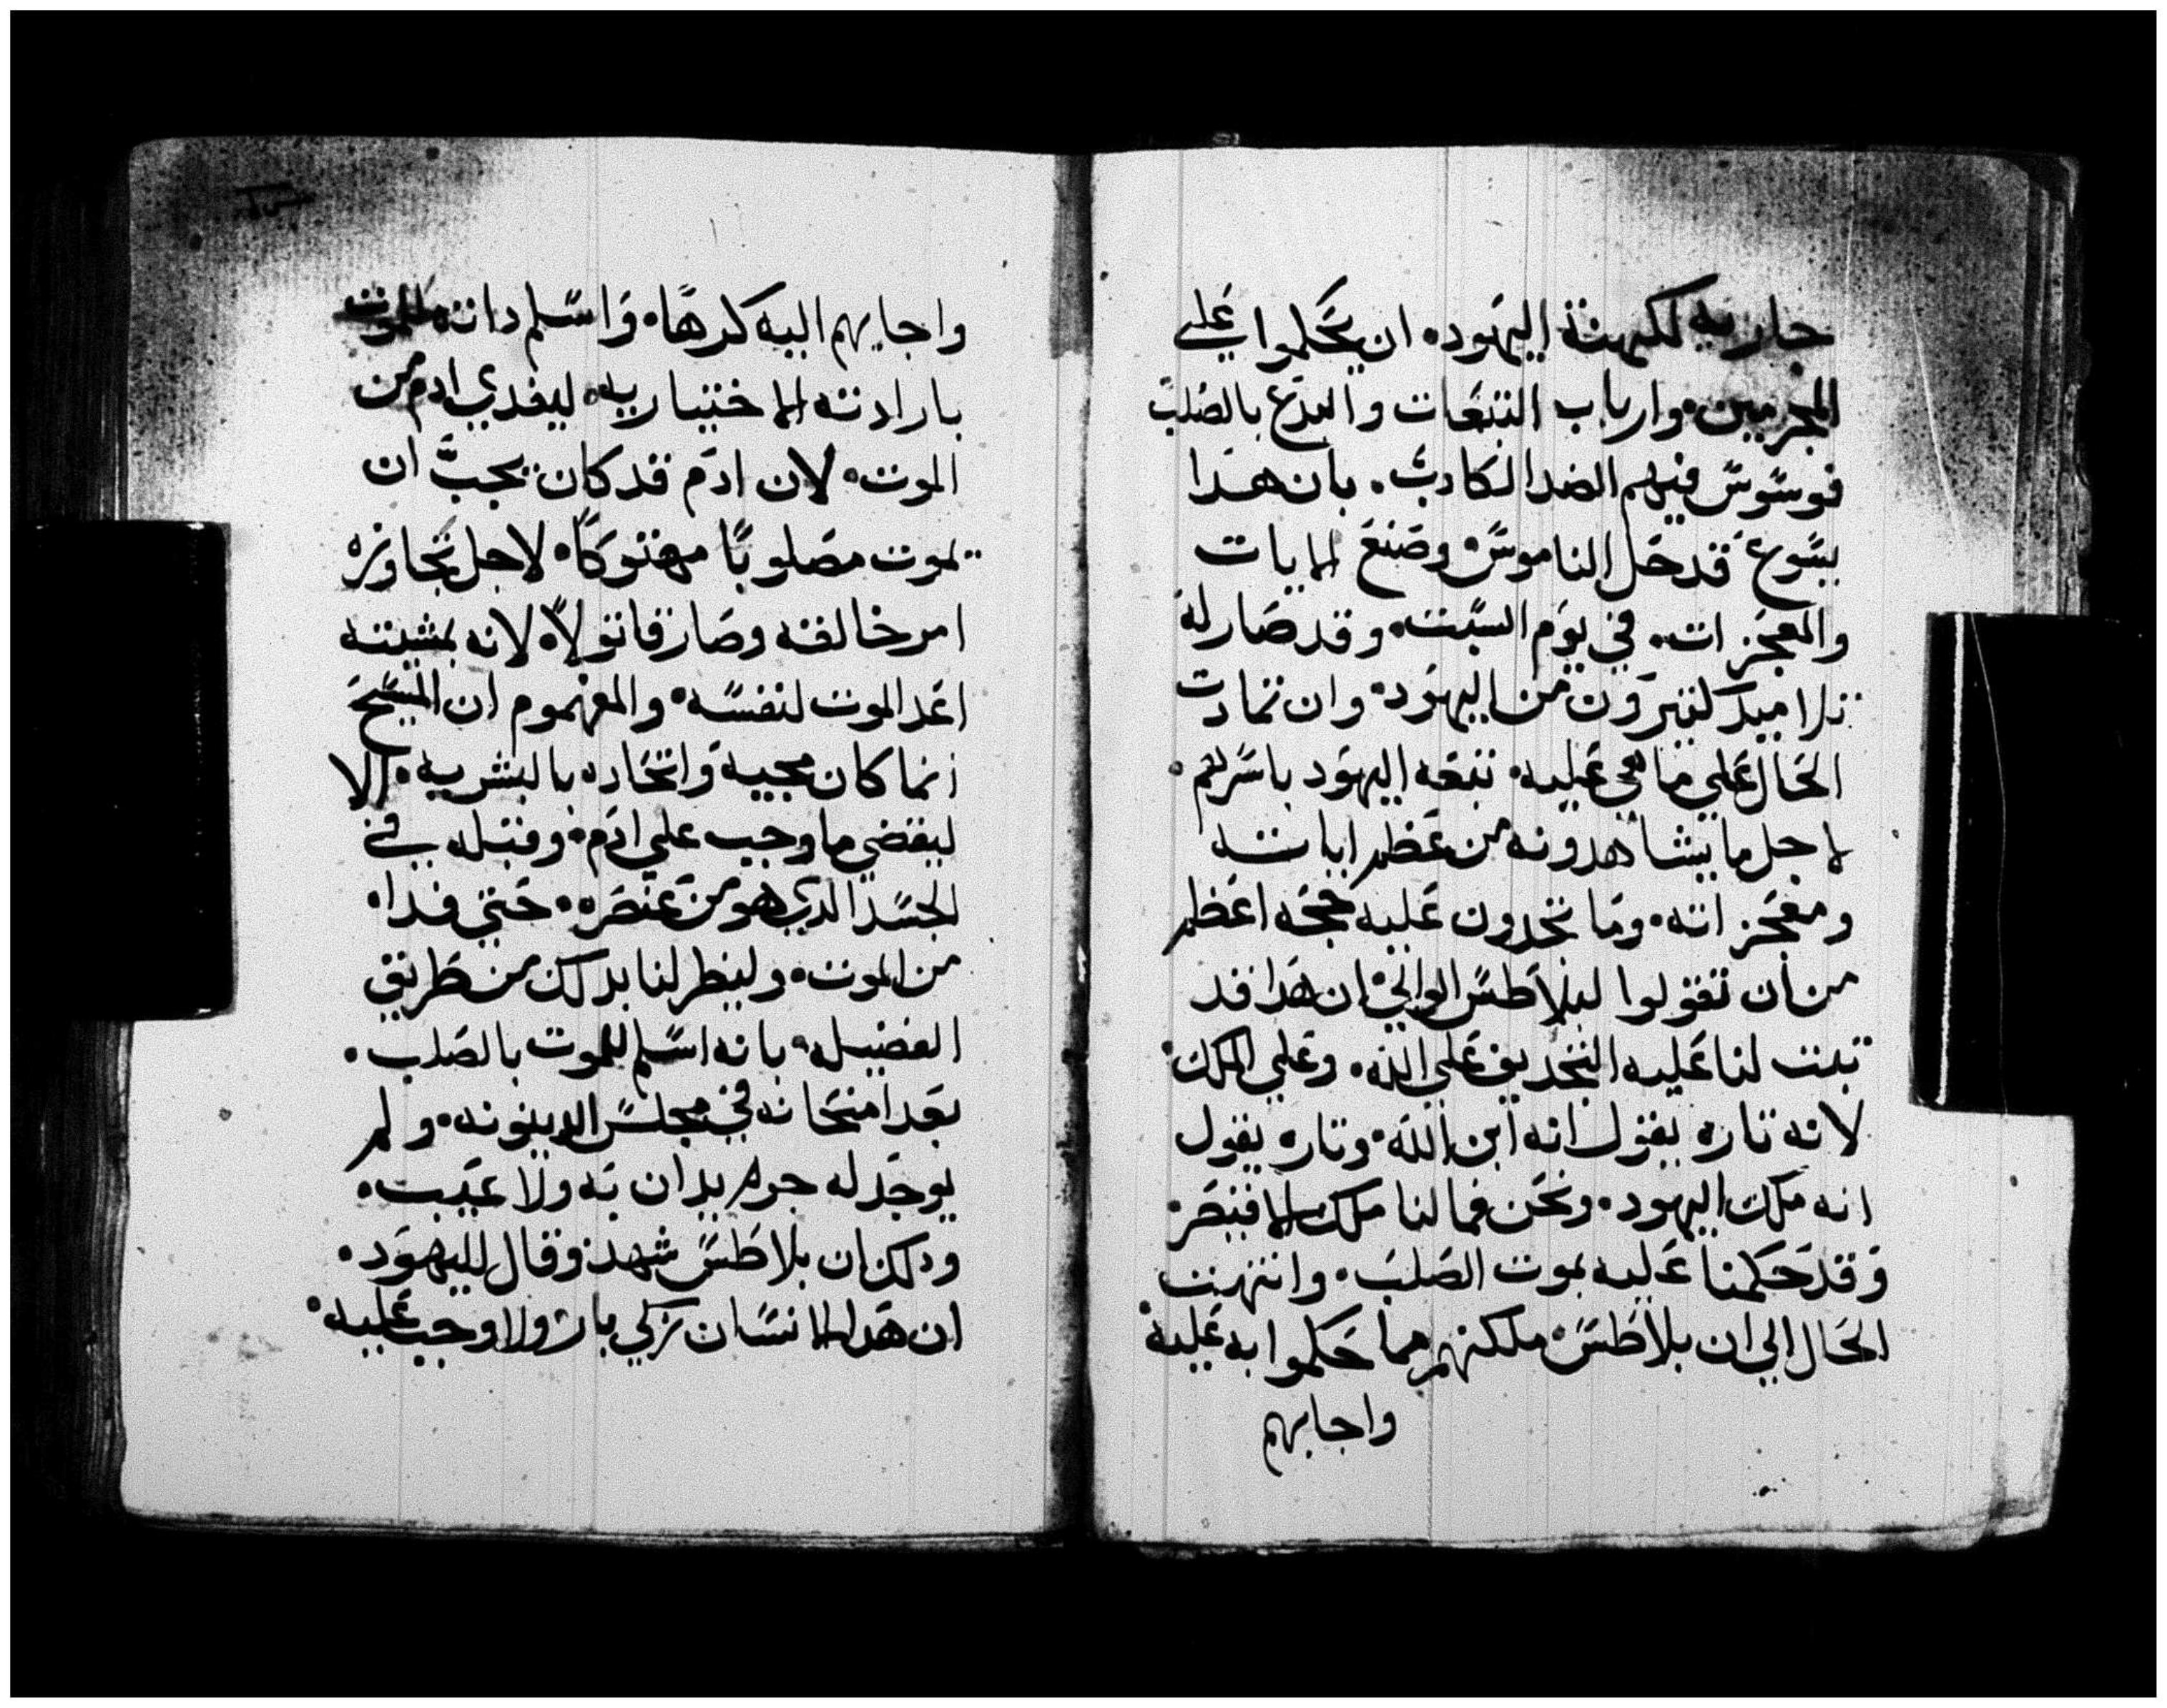 جاريه لكهنة اليهود. ان يحكموا علي
المجرمين. وارباب التبعات والبدع بالصلب
فوسوس فيهم الضد الكادب. بان هدا
يسوع قد حل الناموس وصنع الايات
والمعجزات. في يوم السبت. وقد صار له
تلاميد كتيرون من اليهود. وان تمادت
الحال علي ما هي عليه. تبعه اليهود باسرهم.
لاجل ما يشاهدونه من عظم اياته
ومعجزاته. وما تجدون عليه حجه اعظم
من ان تقولوا لبلاطس الوالي. ان هدا قد
تبت لنا عليه التجديف علي الله. وعلي الملك.
لانه تاره يقول انه ابن الله. وتاره يقول
انه ملك اليهود. ونحن فما لنا ملك الا قيصر.
وقد حكمنا عليه بموت الصلب. وانتهت
الحال الي ان بلاطس ملكهم مما حكموا به عليه.
واجابهم
واجابهم اليه كرهًا. واسلم داته للموت
بارادته الاختياريه. ليفدي ادم من
الموت. لان ادم قد كان يجب ان
يموت مصلوبًا مهتوكًا. لاجل تجاوزه
امر خالقه وصار قاتولاً. لانه بمشيته
اعد الموت لنفسه. والمفهوم ان المسيح
انما كان مجيه واتحاده بالبشريه. الا
ليقضي ما وجب علي ادم. وقبله في
الجسد الدي هو من عنصره. حتي فداه
من الموت. ولينظر لنا بدلك من طريق
الفضيله. بانه اسلم للموت بالصلب.
بعد امتحانه في مجلس الدينونه. ولم
يوجد له جرم يدان به ولا عيب.
ودلك ان بلاطس شهد وقال لليهود.
ان هدا الانسان زكي بار ولا وجب عليه.